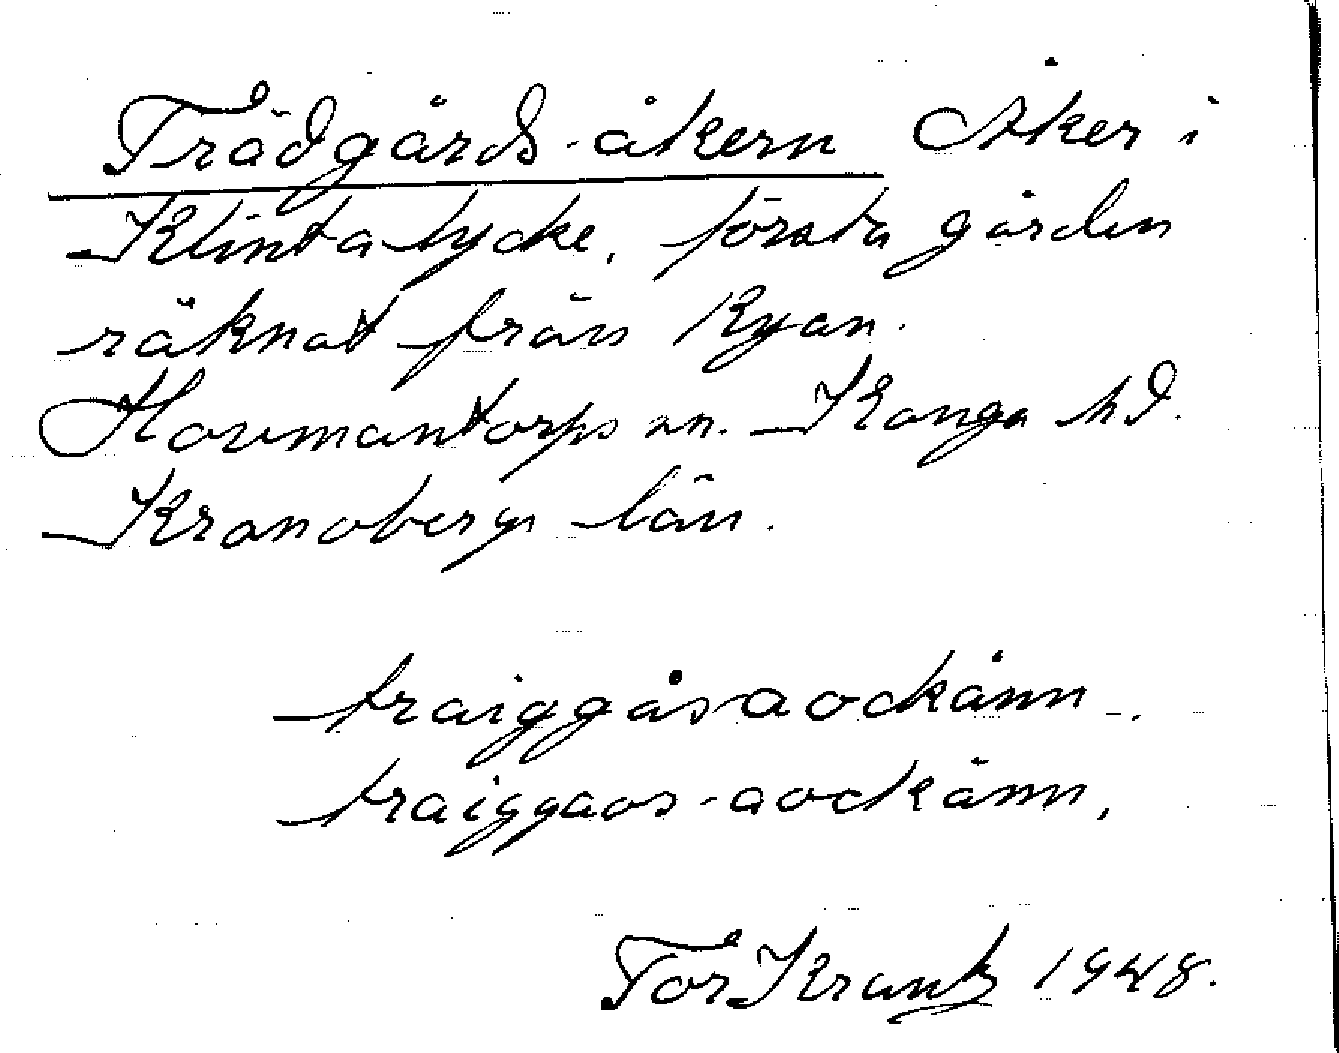 Trädgårds-åkern Åker i
Klintalycke, första gården
räknat från Ryan.
Hovmantorps sn. Konga hd.
Kronobergs län.
traiggåsaockänn.
traiggaos-aockänn,
Tor Krantz 1948.